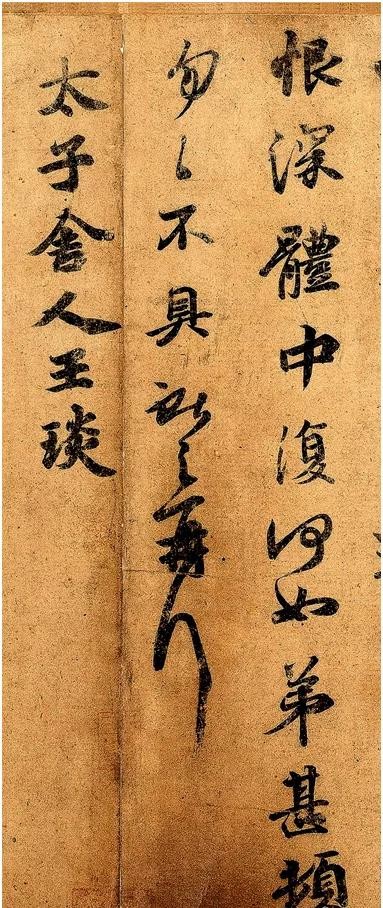 恨深體中復何如弟甚頓
勿々不具獻之再拜
太子舍人王琰